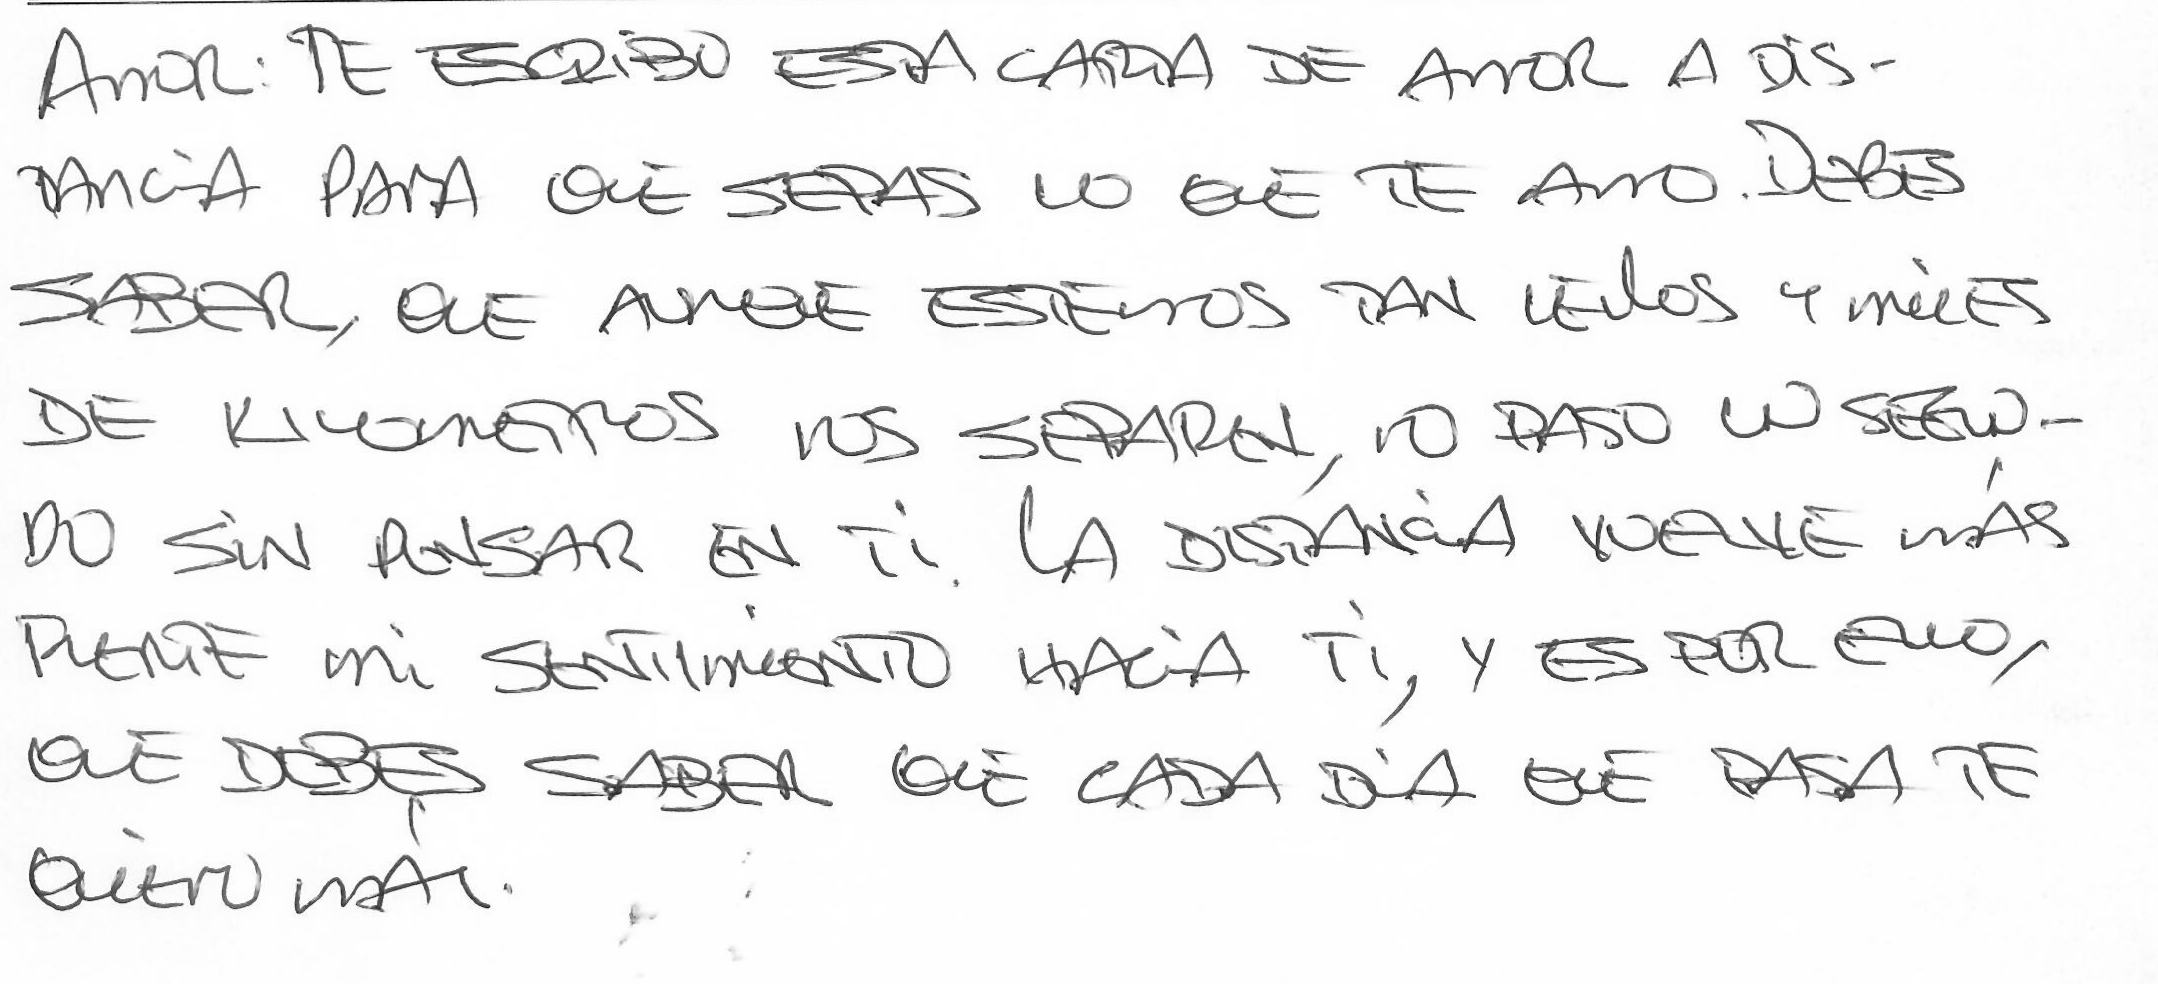 AMOR: TE ESCRIBO ESTA CARTA DE AMOR A DIS-
TANCIA PARA QUE SEPAS LO QUE TE AMO. DEBES
SABER, QUE AUNQUE ESTEMOS TAN LEJOS Y MILES
DE KILOMETROS NOS SEPAREN, NO PASO UN SEGUN-
DO SIN PENSAR EN TI. LA DISTANCIA VUELVE MÁS
FUERTE MI SENTIMIENTO HACIA TI, Y ES POR ELLO,
QUE DEBES SABER QUE CADA DIA QUE PASA TE
QUIERO MÁS.